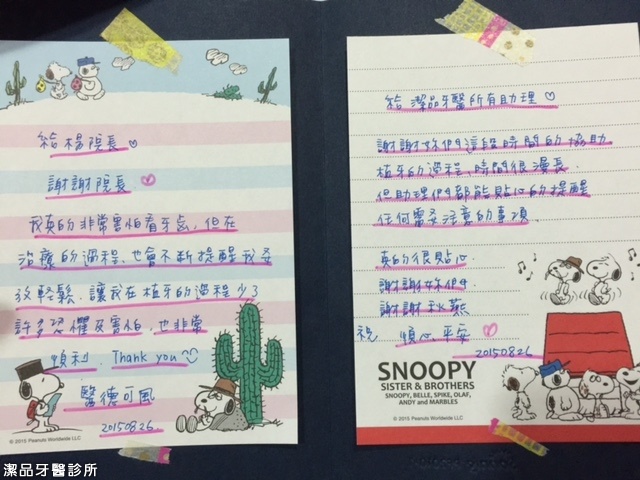 給楊院長♡
謝謝院長♡
我真的非常害怕看牙齒,但在
治療的過程,也會不斷提醒我要
放輕鬆,讓我在植牙的過程少了
許多恐懼及害怕,也非常
順利,Thank you
醫德可風
20150826
© 2015 Peanuts Worldwide LLC
給 潔品牙醫所有助理♡
謝謝妳們這段時間的協助
植牙的過程,時間很漫長
但助理們都能貼心的提醒
任何需要注意的事項
真的很貼心
謝謝妳們
謝謝秋燕
祝 順心平安♡
20150826
SNOOPY
SISTER & BROTHERS
SNOOPY, BELLE, SPIKE, OLAF,
ANDY and MARBLES
© 2015 Peanuts Worldwide LLC
潔品牙醫診所